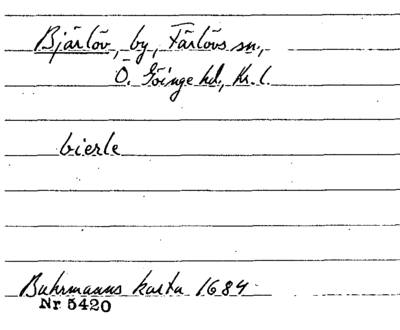 Bjärlöv, by, Färlövs sn.,
Ö. Göinge hd., Kr. l.
bierle
Buhrmanns karta 1684
Nr 5420